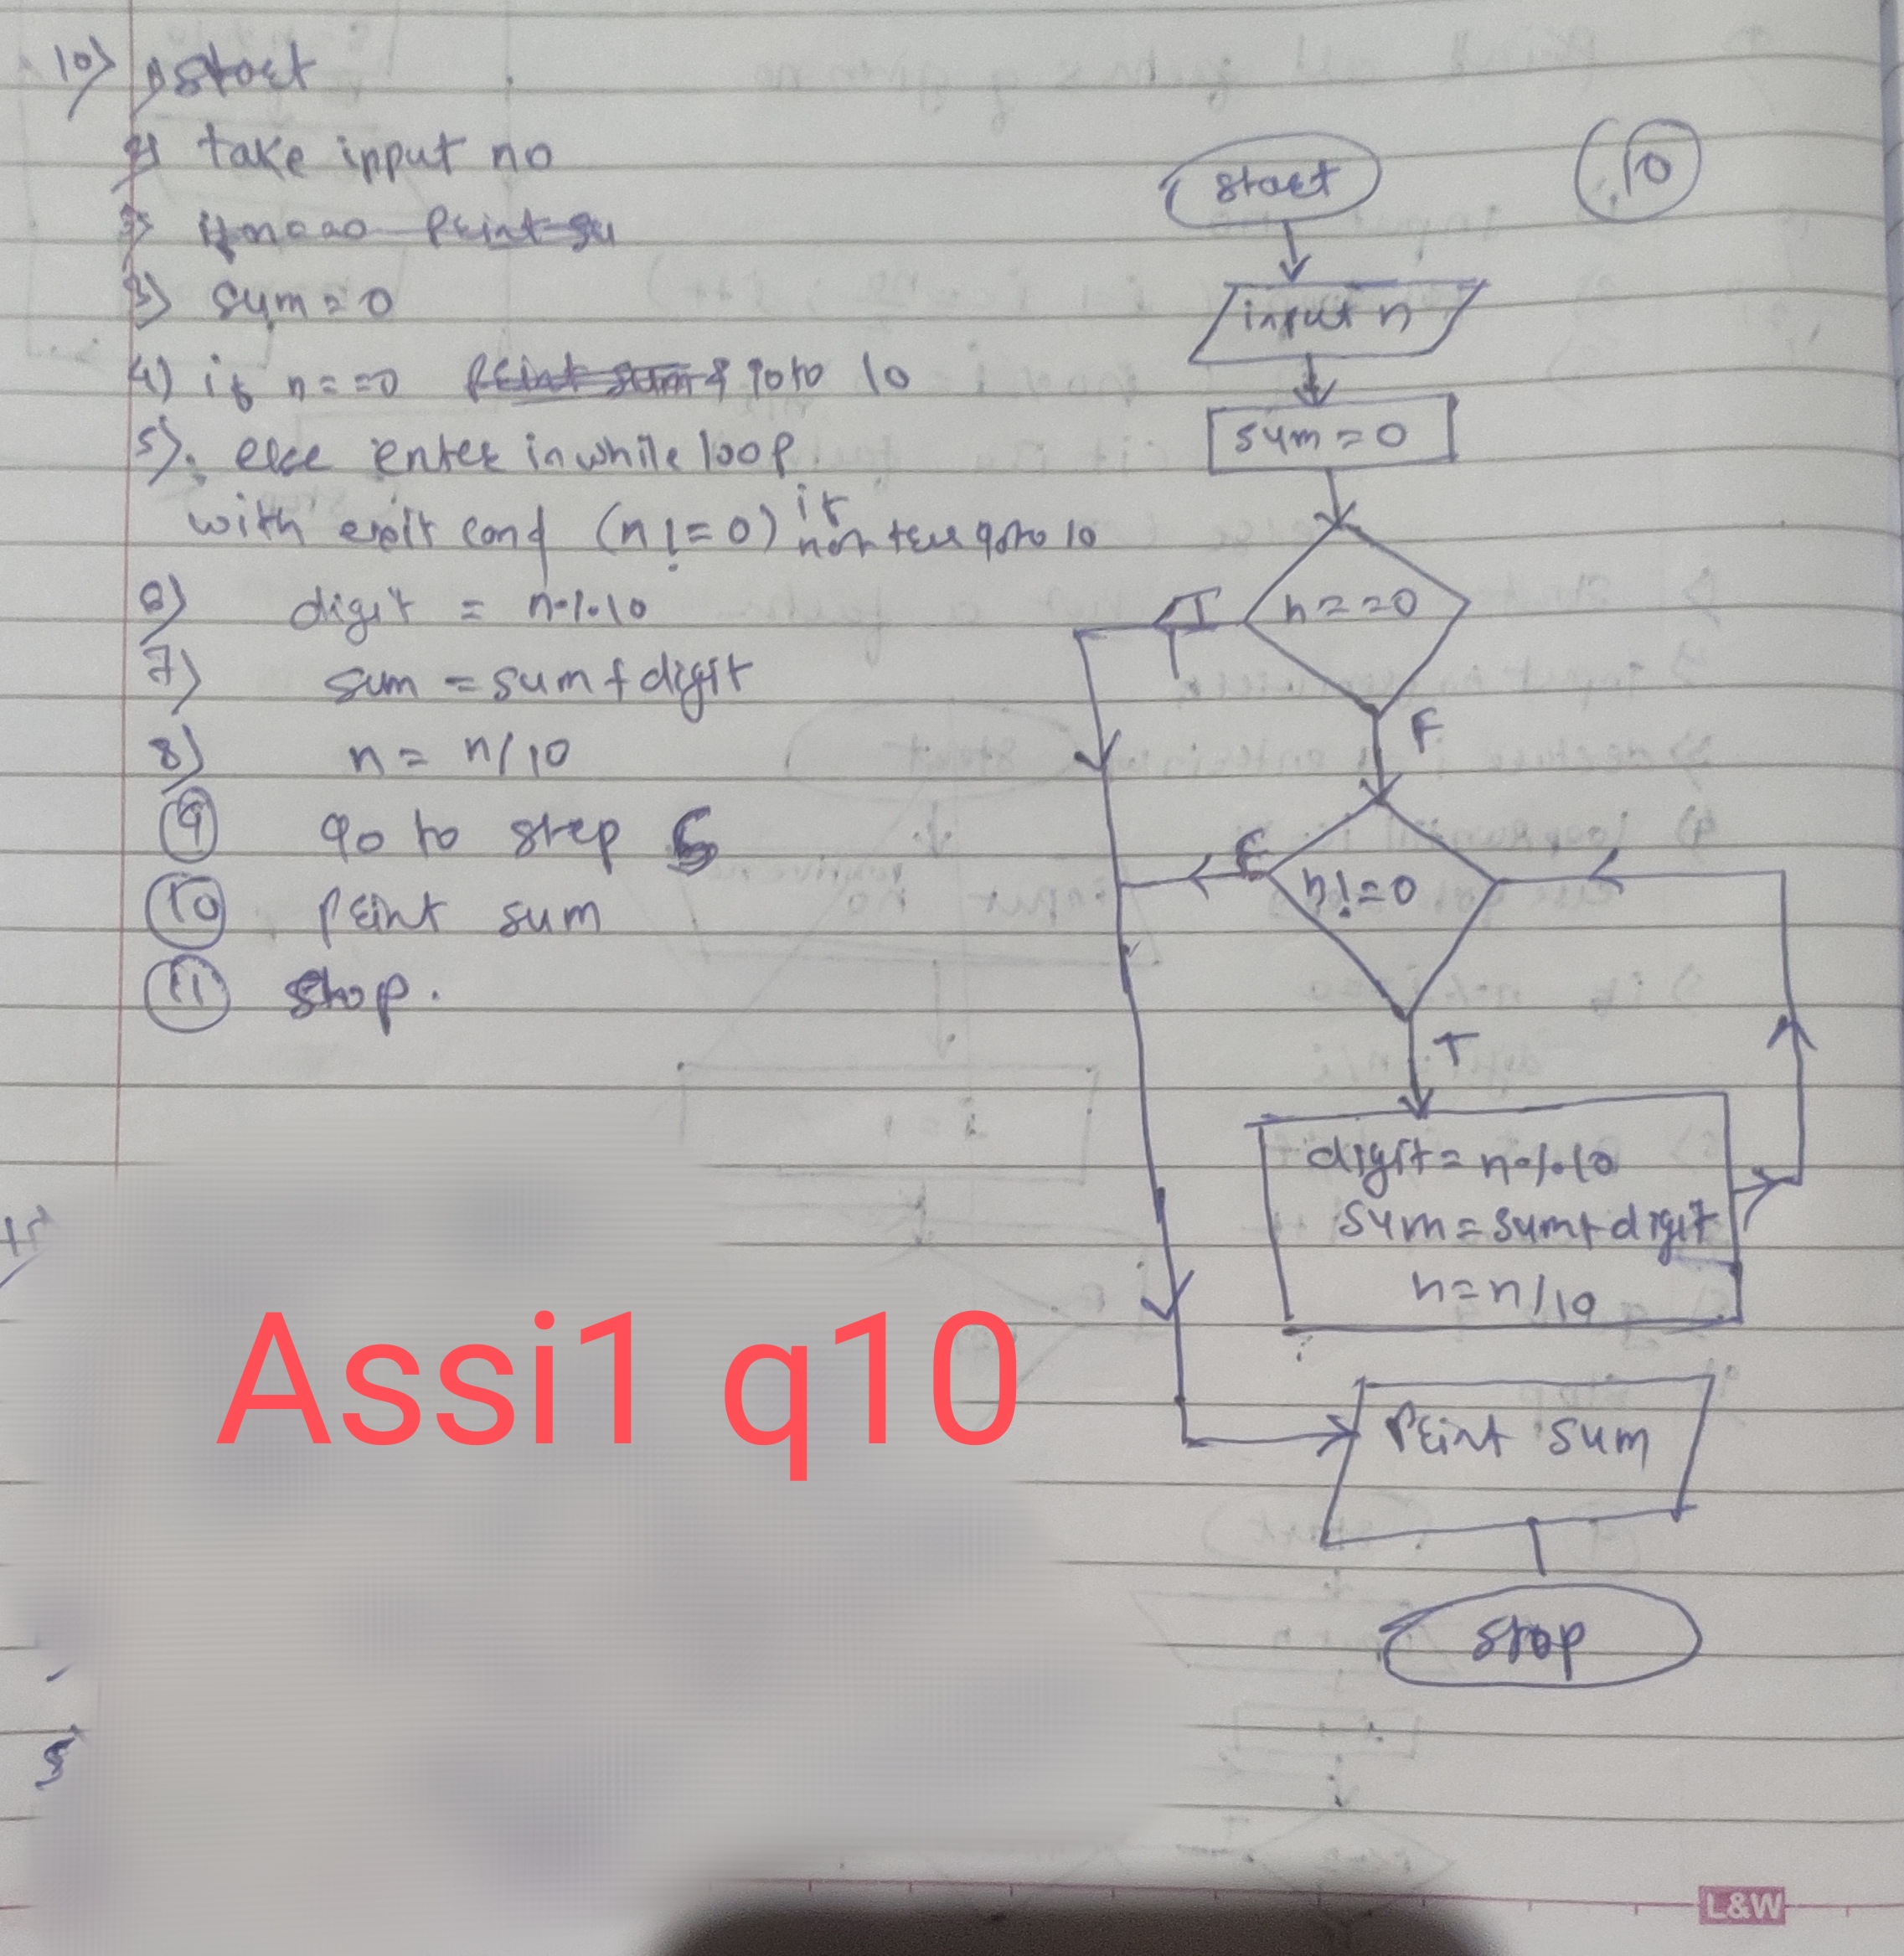 10) 1) Start
2) take input no
3) if n==0 Print su
3) sum = 0
4) if n==0 Print sum & goto 10
5). else enter in while loop
with exit cond (n!=0) if not true goto 10
6) digit = n%10
7) sum = sum + digit
8) n = n/10
9 go to step 5
10 print sum
11 stop.
10
start
input n
sum = 0
n==0
T
F
n!=0
F
T
digit = n%10
sum = sum + digit
n = n/10
Print sum
stop
Assi1 q10
L&W